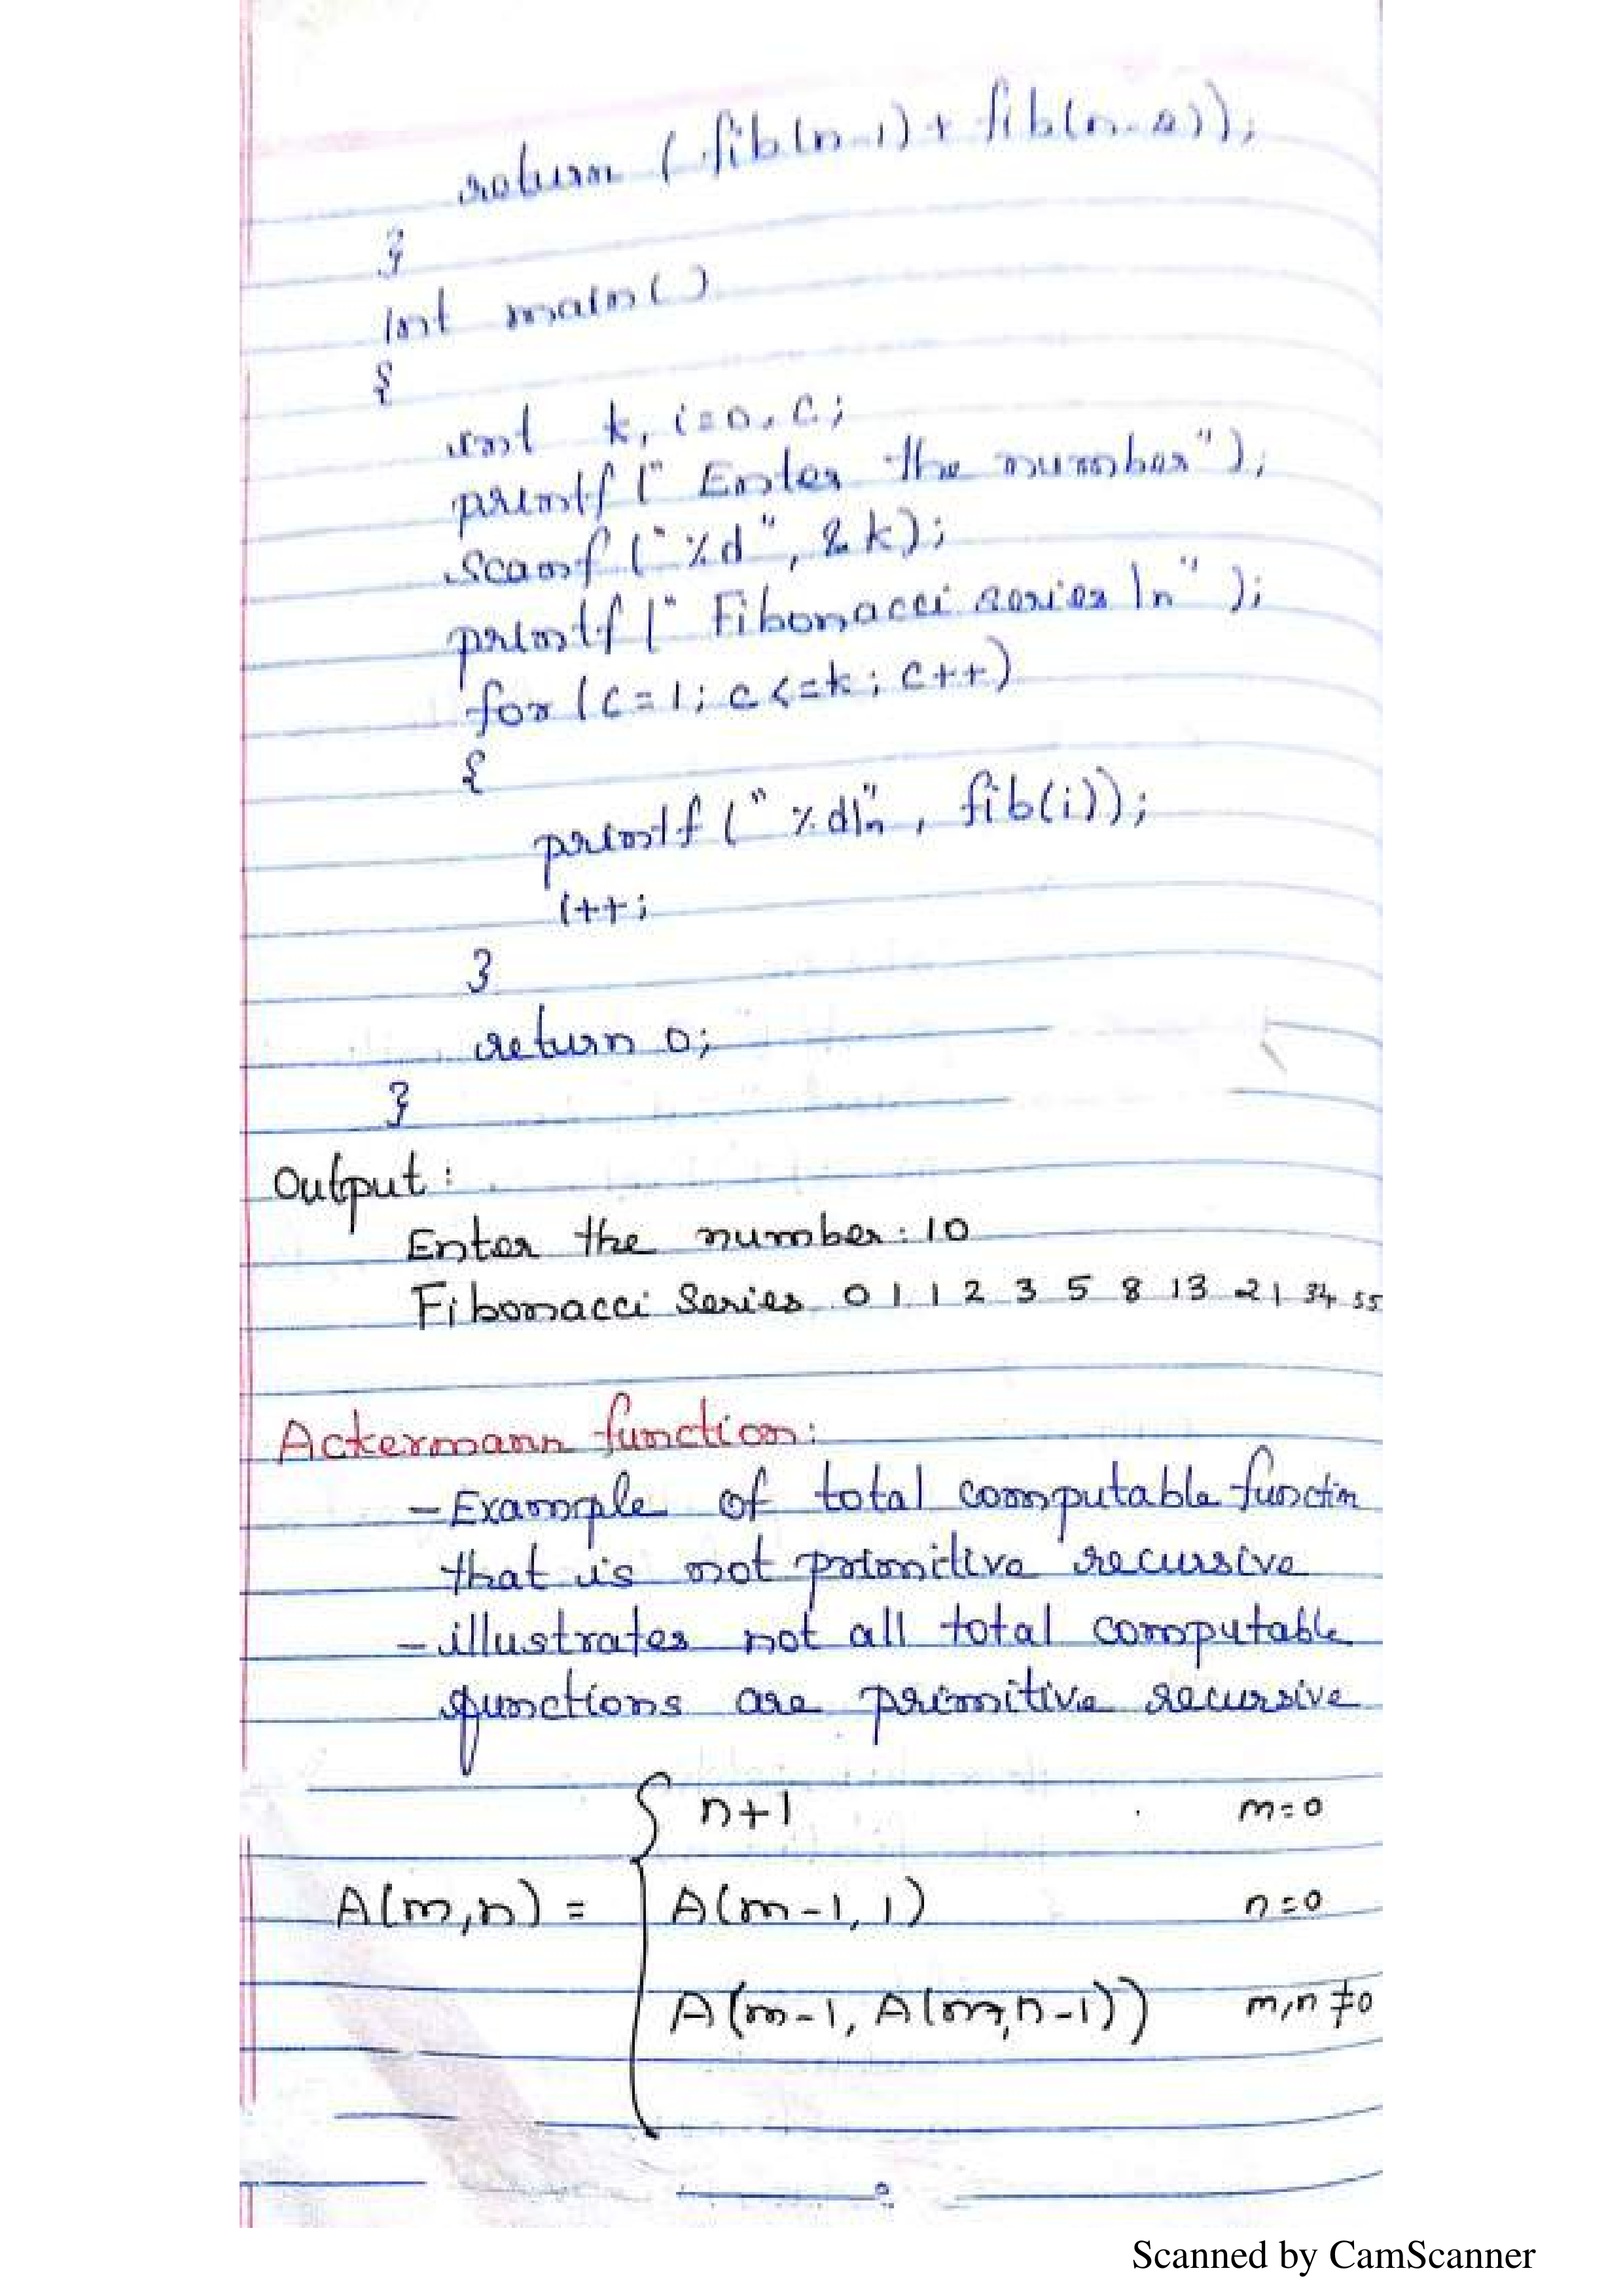 return (fib(n-1) + fib(n-2));
}
int main()
{
int k, i=0, c;
printf(" Enter the number");
scanf("%d", &k);
printf(" Fibonacci series \n");
for (c=1; c<=k; c++)
{
printf("%d\n", fib(i));
i++;
}
return 0;
}
Output:
Enter the number: 10
Fibonacci Series 0 1 1 2 3 5 8 13 21 34 55
Ackermann function:
- Example of total computable functin
that is not primitive recursive
- illustrates not all total computable
functions are primitive recursive
n+1 m=0
A(m,n) = A(m-1, 1) n=0
A(m-1, A(m,n-1)) m,n ≠0
Scanned by CamScanner